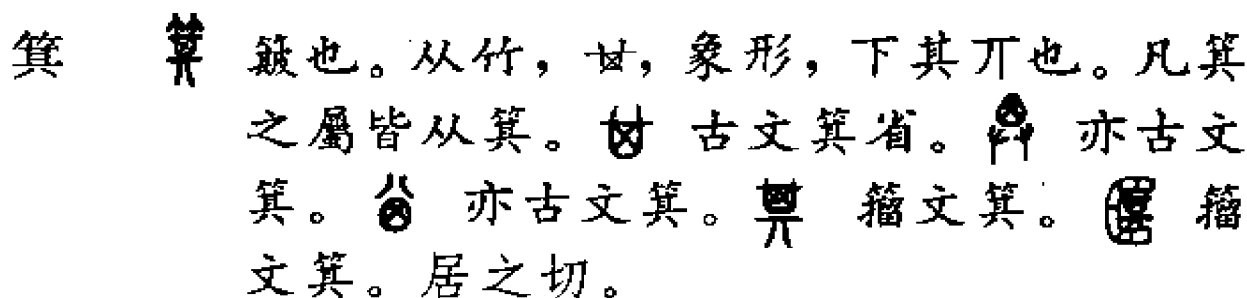 箕 簸也。从竹,𠀠,象形,下其丌也。凡箕
之屬皆从箕。 古文箕省。 亦古文
箕。 亦古文箕。 籀文箕。 籀
文箕。居之切。